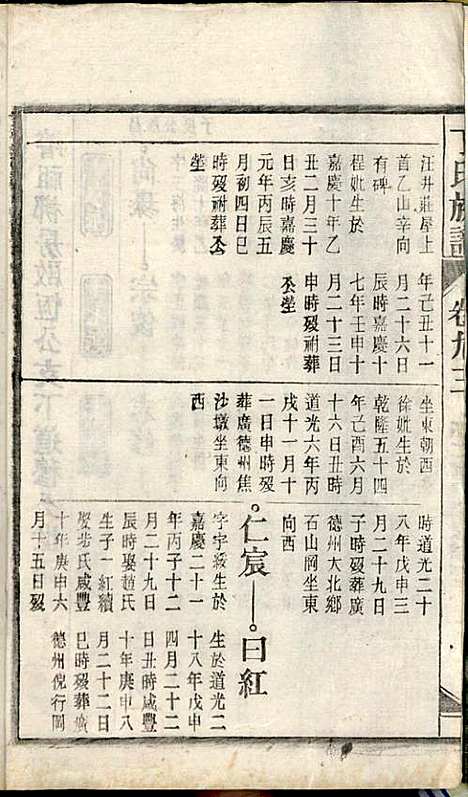 丁氏族譜
卷九三
汪井莊屋上
首乙山辛向
有碑
程妣生於
嘉慶十年乙
丑二月三十
日亥時嘉慶
元年丙辰五
月初四日巳
時歿祔葬夲
塋
年己丑十一
月二十六日
辰時嘉慶十
七年壬申十
月二十三日
申時歿祔葬
夲塋
坐東朝西
徐妣生於
乾隆五十四
年己酉六月
十六日丑時
道光六年丙
戌十一月十
一日申時歿
葬廣德州焦
沙墩坐東向
西
時道光二十
八年戊申三
月二十九日
子時歿葬廣
德州大北鄉
石山岡坐東
向西
仁宸
字宇綏生於
嘉慶二十一
年丙子十二
月二十九日
辰時娶趙氏
生子一紅續
娶 氏咸豐
十年庚申六
月十五日歿
曰紅
生於道光二
十八年戊申
四月二十二
日丑時咸豐
十年庚申八
月二十二日
巳時歿葬廣
德州倪行岡